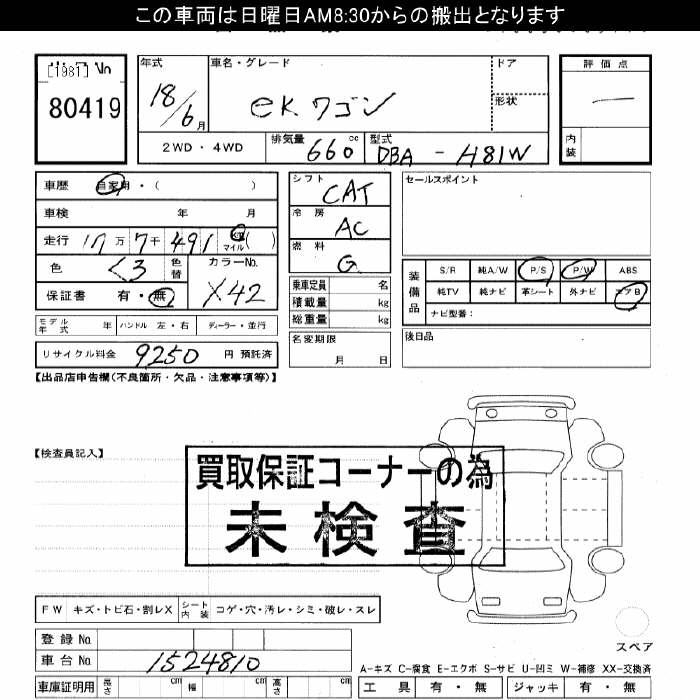 この車両は日曜日AM8:30からの搬出となります
[1981] No
80419
年式 18/6月
車名・グレード eKワゴン
ドア
形状
2WD・4WD
排気量 660 cc
型式 DBA - H81W
評価点
—
内装
車歴 自家用・( )
車検 年 月
走行 17万7千491 km マイル( )
色 くろ 色替
カラーNo. X42
保証書 有・無
モデル年式 年 ハンドル 左・右 ディーラー・並行
リサイクル料金 9250 円 預託済
シフト CAT
冷房 AC
燃料 G
乗車定員 名
積載量 kg
総重量 kg
名変期限
月 日
セールスポイント
装備品
S/R 純A/W P/S P/W ABS
純TV 純ナビ 革シート 外ナビ エアB
ナビ型番:
後日品
【出品店申告欄(不良箇所・欠品・注意事項等)】
【検査員記入】
買取保証コーナーの為
未検査
FW キズ・トビ石・割レX シート内装 コゲ・穴・汚レ・シミ・破レ・スレ
登録No.
車台No. 1524810
車庫証明用 長さ cm 幅 cm 高さ cm
スペア
A-キズ C-腐食 E-エクボ S-サビ U-凹ミ W-補修 XX-交換済
工具 有・無 ジャッキ 有・無